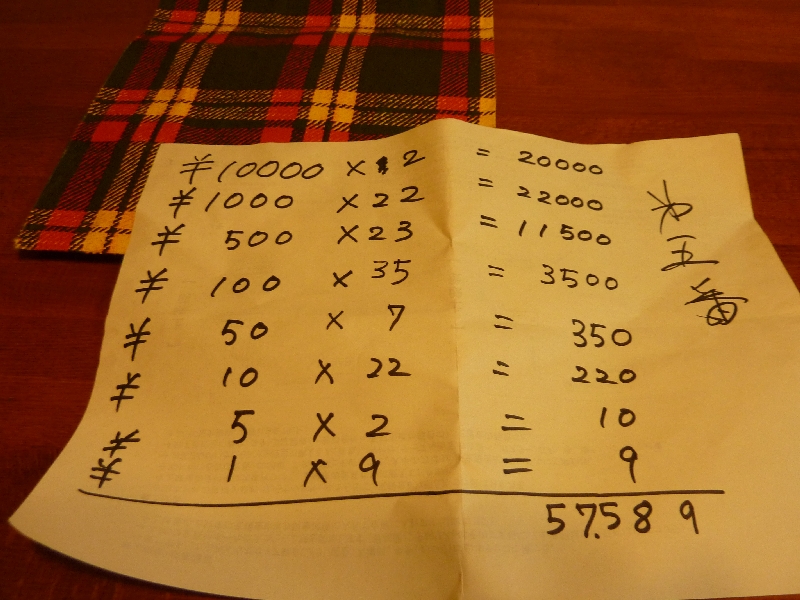 ¥10000 × 2 = 20000
¥1000 × 22 = 22000
¥ 500 × 23 = 11500
¥ 100 × 35 = 3500
¥ 50 × 7 = 350
¥ 10 × 22 = 220
¥ 5 × 2 = 10
¥ 1 × 9 = 9
57.589